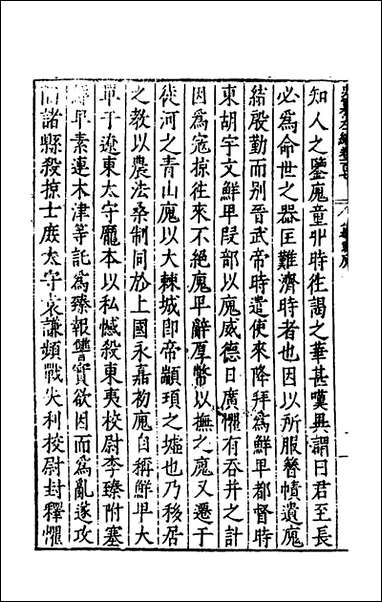 知人之鑒廆童丱時往謁之華甚嘆異謂曰君至長
必爲命世之器匡難濟時者也因以所服簪幘遺廆
結殷勤而别晉武帝時遣使來降拜爲鮮卑都督時
東胡宇文鮮卑段部以廆威德日廣懼有吞并之計
因爲寇掠往來不絕廆卑辭厚幣以撫之廆又遷于
徒河之青山廆以大棘城卽帝顓頊之墟也乃移居
之教以農法桑制同於上國永嘉初廆自稱鮮卑大
單于遼東太守龐本以私憾殺東夷校尉李臻附塞
鮮卑素連木津等託爲臻報讐實欲因而爲亂遂攻
陷諸縣殺掠士庶太守袁謙頻戰失利校尉封釋懼